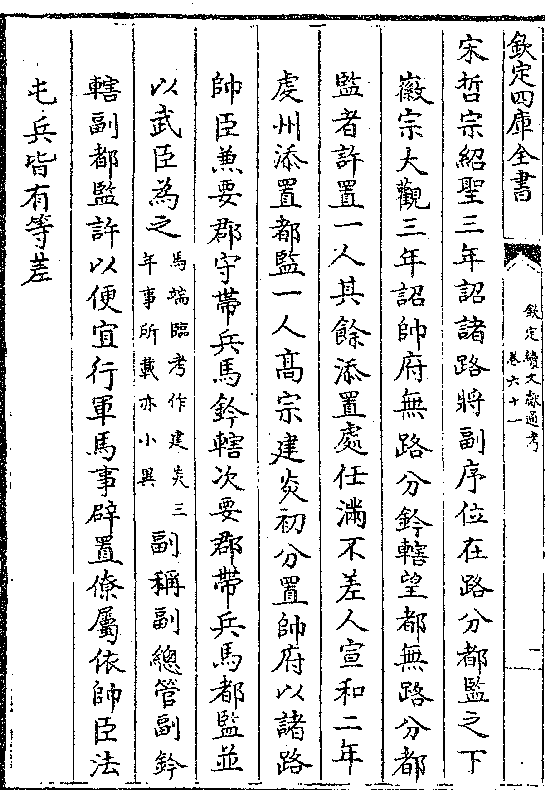 欽定四庫全書
欽定續文獻通考
卷六十一
一
宋哲宗紹聖三年詔諸路將副序位在路分都監之下
徽宗大觀三年詔帥府無路分鈐轄望都無路分都
監者許置一人其餘添置處任滿不差人宣和二年
䖏州添置都監一人髙宗建炎初分置帥府以諸路
帥臣兼要郡守帶兵馬鈐轄次要郡帶兵馬都監並
以武臣為之
馬端臨考作建炎三
年事所載亦小異
副稱副總管副鈐
轄副都監許以便宜行軍馬事辟置僚屬依帥臣法
屯兵皆有等差